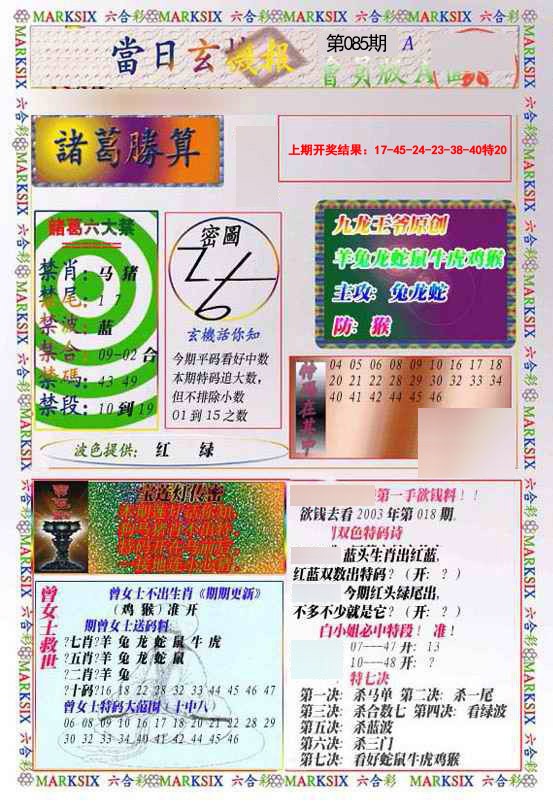 MARKSIX 六合彩 MARKSIX 六合彩 MARKSIX 六合彩 MARKSIX 六合彩 MARKSIX
當日玄機报
第085期 A
會員版A面
諸葛勝算
上期开奖结果：17-45-24-23-38-40特20
諸葛六大禁
禁肖：马 猪
禁尾：1 7
禁波：蓝
禁合：09-02 合
禁碼：43 49
禁段：10 到 19
密圖
玄機話你知
今期平码看好中数
本期特码追大数，
但不排除小数
01 到 15 之数
九龙王爷原创
羊兔龙蛇鼠牛虎鸡猴
主攻：兔龙蛇
防：猴
04 05 06 08 09 10 16 17 18
20 21 22 28 29 30 32 33 34
40 41 42 44 45 46
波色提供： 红 绿
宝莲灯传密
第一手欲钱料！！
欲钱去看 2003 年第 018 期。
双色特码诗
蓝头生肖出红蓝，
红蓝双数出特码？（开：？）
今期红头绿尾出，
不多不少就是它？（开：？）
白小姐必中特段！ 准！
07---47 开：13
10---48 开：？
特七决
第一决：杀马单 第二决：杀一尾
第三决：杀合数七 第四决：看绿波
第五决：杀蓝波
第六决：杀三门
第七决：看好蛇鼠牛虎鸡猴
曾女士救世
曾女士不出生肖《期期更新》
（鸡 猴）准 开
期曾女士送码料：
?七肖?羊 兔 龙 蛇 鼠 牛 虎
?五肖?羊 兔 龙 蛇 鼠
?二肖?羊 兔
?十码?16 18 22 28 32 33 44 45 46 47
曾女士特码大范围（十中八）
06 08 09 10 16 17 18 20 21 22 28 29
30 32 33 34 40 41 42 44 45 46
MARKSIX 六合彩 MARKSIX 六合彩 MARKSIX 六合彩 MARKSIX 六合彩 MARKSIX